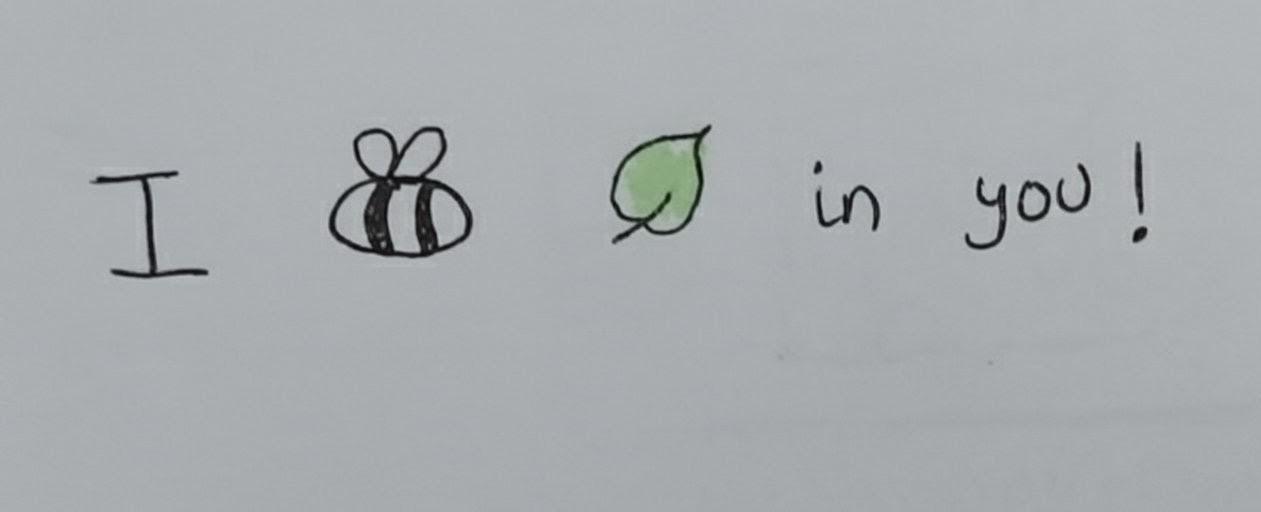 I in you!